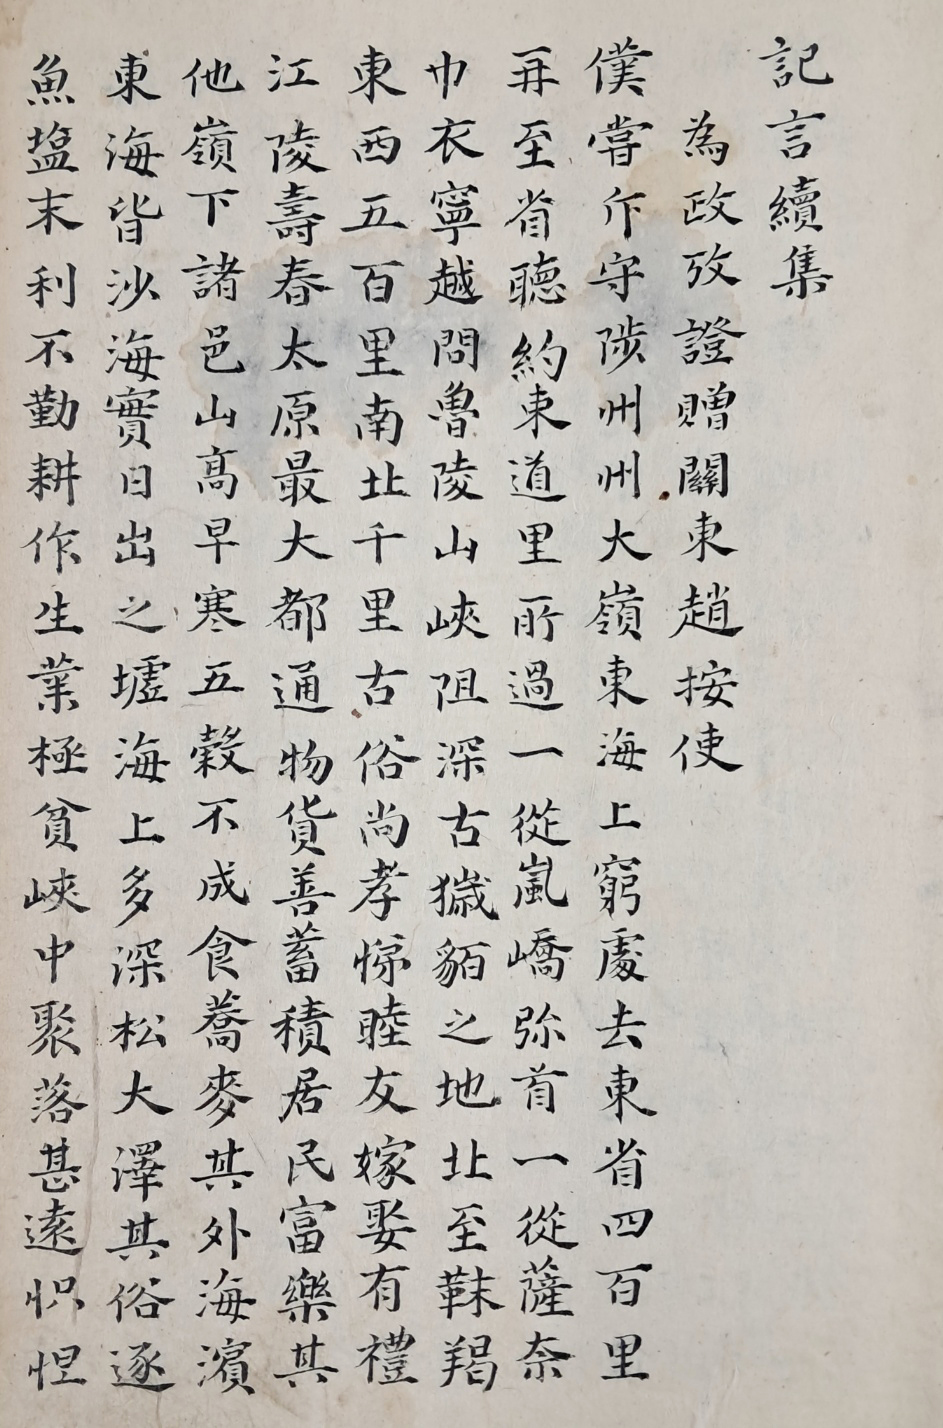 記言續集
為政攷證贈關東趙按使
僕嘗斥守陟州州大嶺東海上窮處去東省四百里
再至省聽約束道里所過一從嵐嶠弥首一從薩奈
巾衣寧越問魯陵山峽阻深古獩貊之地北至靺羯
東西五百里南北千里古俗尚孝悌睦友嫁娶有禮
江陵壽春太原最大都通物貨善蓄積居民富樂其
他嶺下諸邑山高早寒五穀不成食蕎麥其外海濱
東海皆沙海實日出之墟海上多深松大澤其俗逐
魚塩末利不勤耕作生業極貧峽中聚落甚遠怾怛